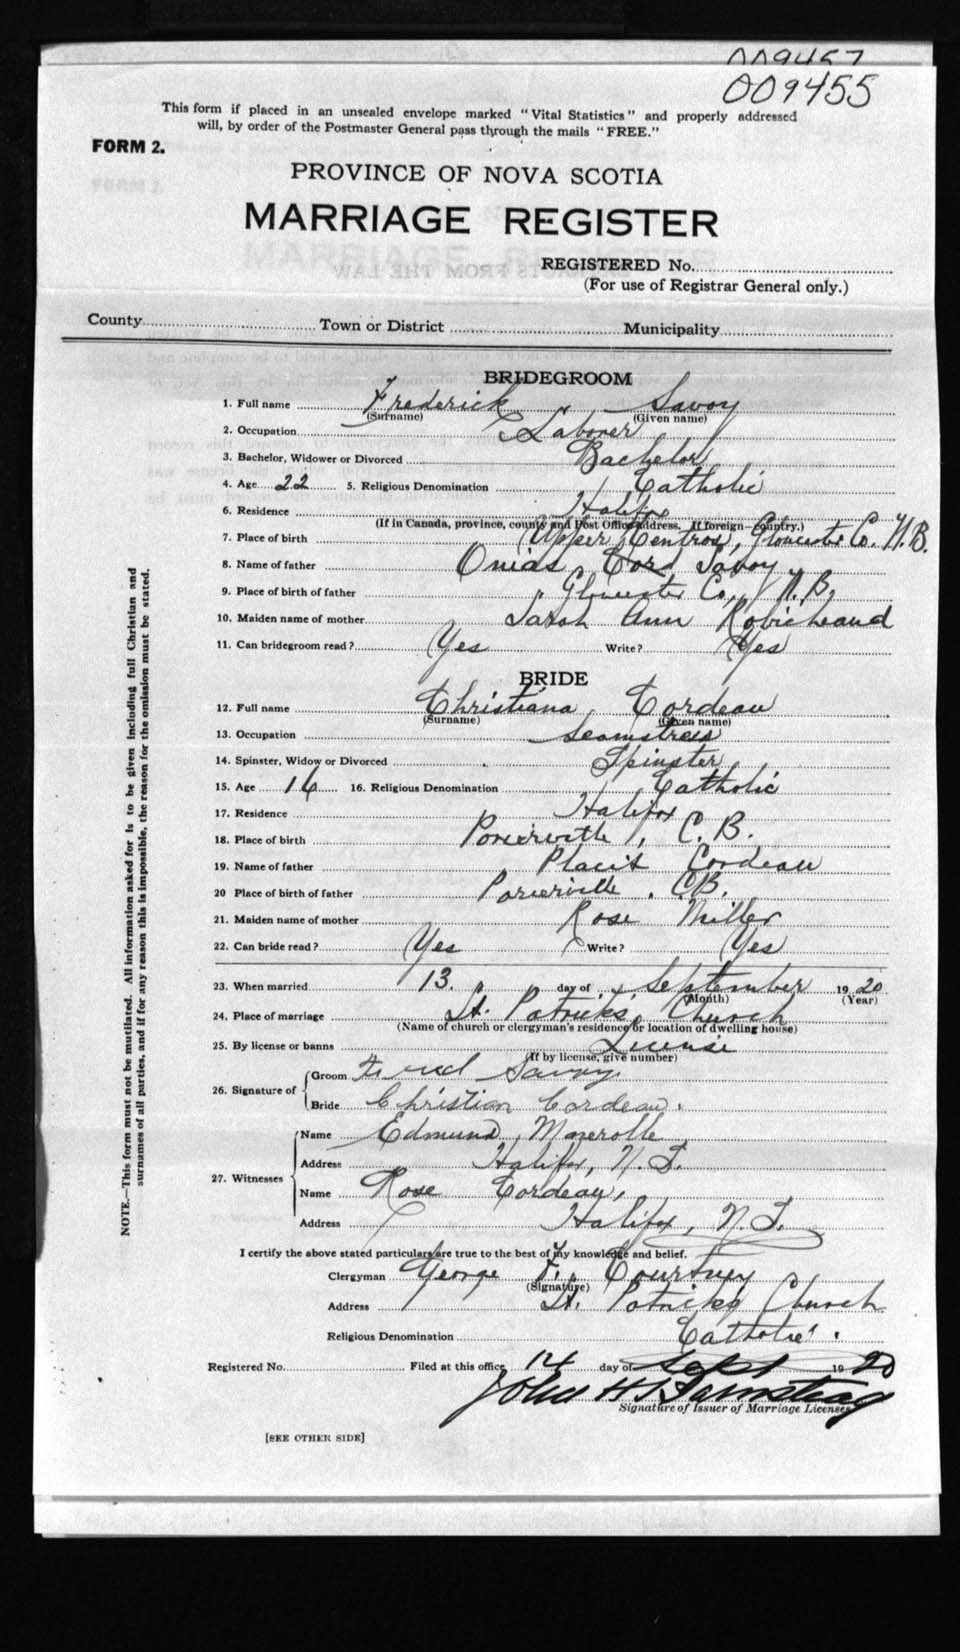 009457
009455
This form if placed in an unsealed envelope marked "Vital Statistics" and properly addressed
will, by order of the Postmaster General pass through the mails "FREE."
FORM 2.
PROVINCE OF NOVA SCOTIA
MARRIAGE REGISTER
REGISTERED No.
(For use of Registrar General only.)
County Town or District Municipality
BRIDEGROOM
1. Full name Frederick Savoy
(Surname) (Given name)
2. Occupation Laborer
3. Bachelor, Widower or Divorced Bachelor
4. Age 22 5. Religious Denomination Catholic
6. Residence Halifax
(If in Canada, province, county and Post Office address. If foreign—country.)
7. Place of birth Upper Gloucester Co. N.B.
8. Name of father Onias Savoy
9. Place of birth of father Gloucester Co., N.B.
10. Maiden name of mother Sarah Ann Robicheaud
11. Can bridegroom read? Yes Write? Yes
BRIDE
12. Full name Christiana Cordeau
(Surname) (Given name)
13. Occupation Seamstress
14. Spinster, Widow or Divorced Spinster
15. Age 16 16. Religious Denomination Catholic
17. Residence Halifax
18. Place of birth Poirierville, C.B.
19. Name of father Placit Cordeau
20 Place of birth of father Poirierville. CB.
21. Maiden name of mother Rose Miller
22. Can bride read? Yes Write? Yes
23. When married 13. day of September 1920
(Month) (Year)
24. Place of marriage St. Patrick's Church
(Name of church or clergyman's residence or location of dwelling house)
25. By license or banns License
(If by license, give number)
26. Signature of Groom Fred Savoy
Bride Christian Cordeau.
27. Witnesses Name Edmund Mazerolle
Address Halifax, N.S.
Name Rose Cordeau,
Address Halifax, N.S.
I certify the above stated particulars are true to the best of my knowledge and belief.
Clergyman George F. Courtney
(Signature)
Address St. Patrick's Church
Religious Denomination Catholic.
Registered No. Filed at this office, 14 day of Sept 1920
John H
Signature of Issuer of Marriage Licenses
[SEE OTHER SIDE]
NOTE.—This form must not be mutilated. All information asked for is to be given including full Christian and
surnames of all parties, and if for any reason this is impossible, the reason for the omission must be stated.